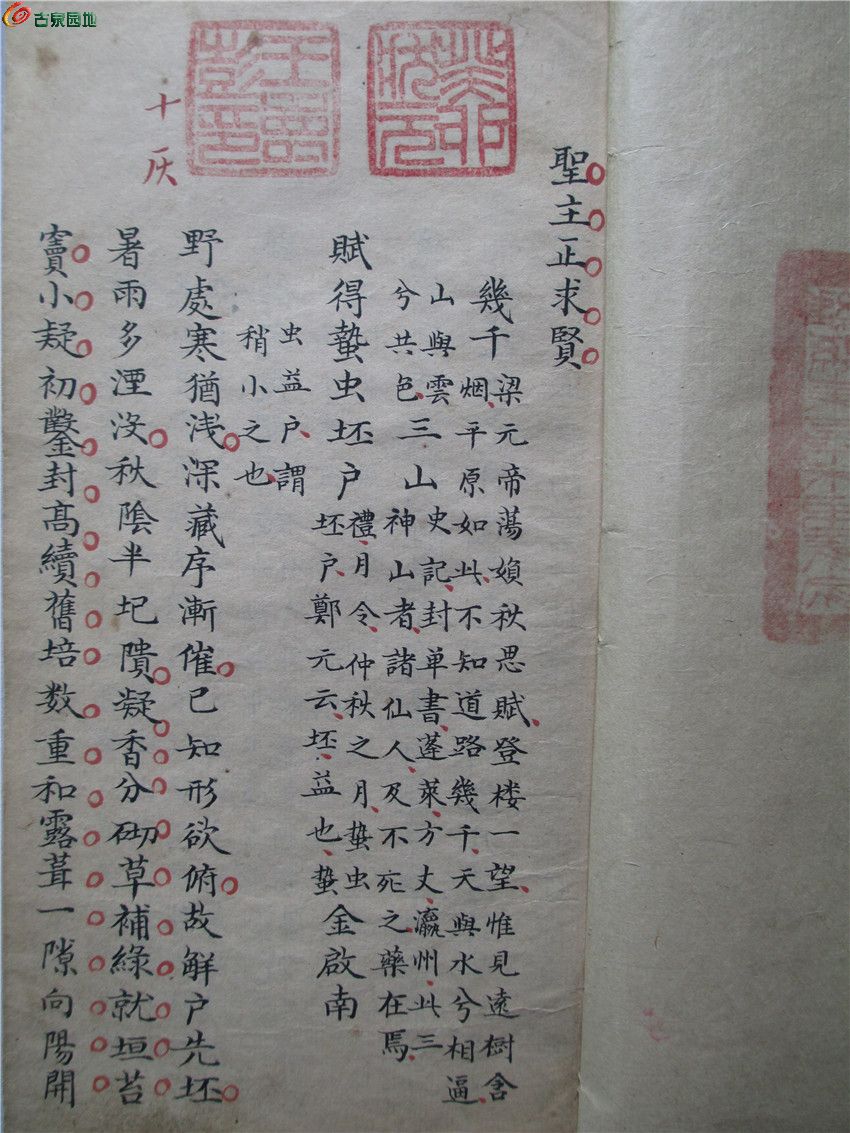 古泉园地
癸卯狀元
王壽彭印
十灰
聖主正求賢
幾千
梁元帝蕩媍秋思賦登楼一望惟見遠樹含
烟平原如此不知道路幾千天與水兮相逼
山與雲
兮共色
三山
史記封单書蓬萊方丈瀛州此三
神山者諸仙人及不死之藥在焉
賦得蟄虫坯户
禮月令仲秋之月蟄虫
坯户鄭元云坯益也蟄
金啟南
虫益户謂
稍小之也
野處寒猶浅深藏序漸催已知形欲俯故觧户先坯
暑雨多湮没秋陰半圮隤凝香分砌草補綠就垣苔
竇小疑初鑿封高續舊培数重和露葺一隙向陽開